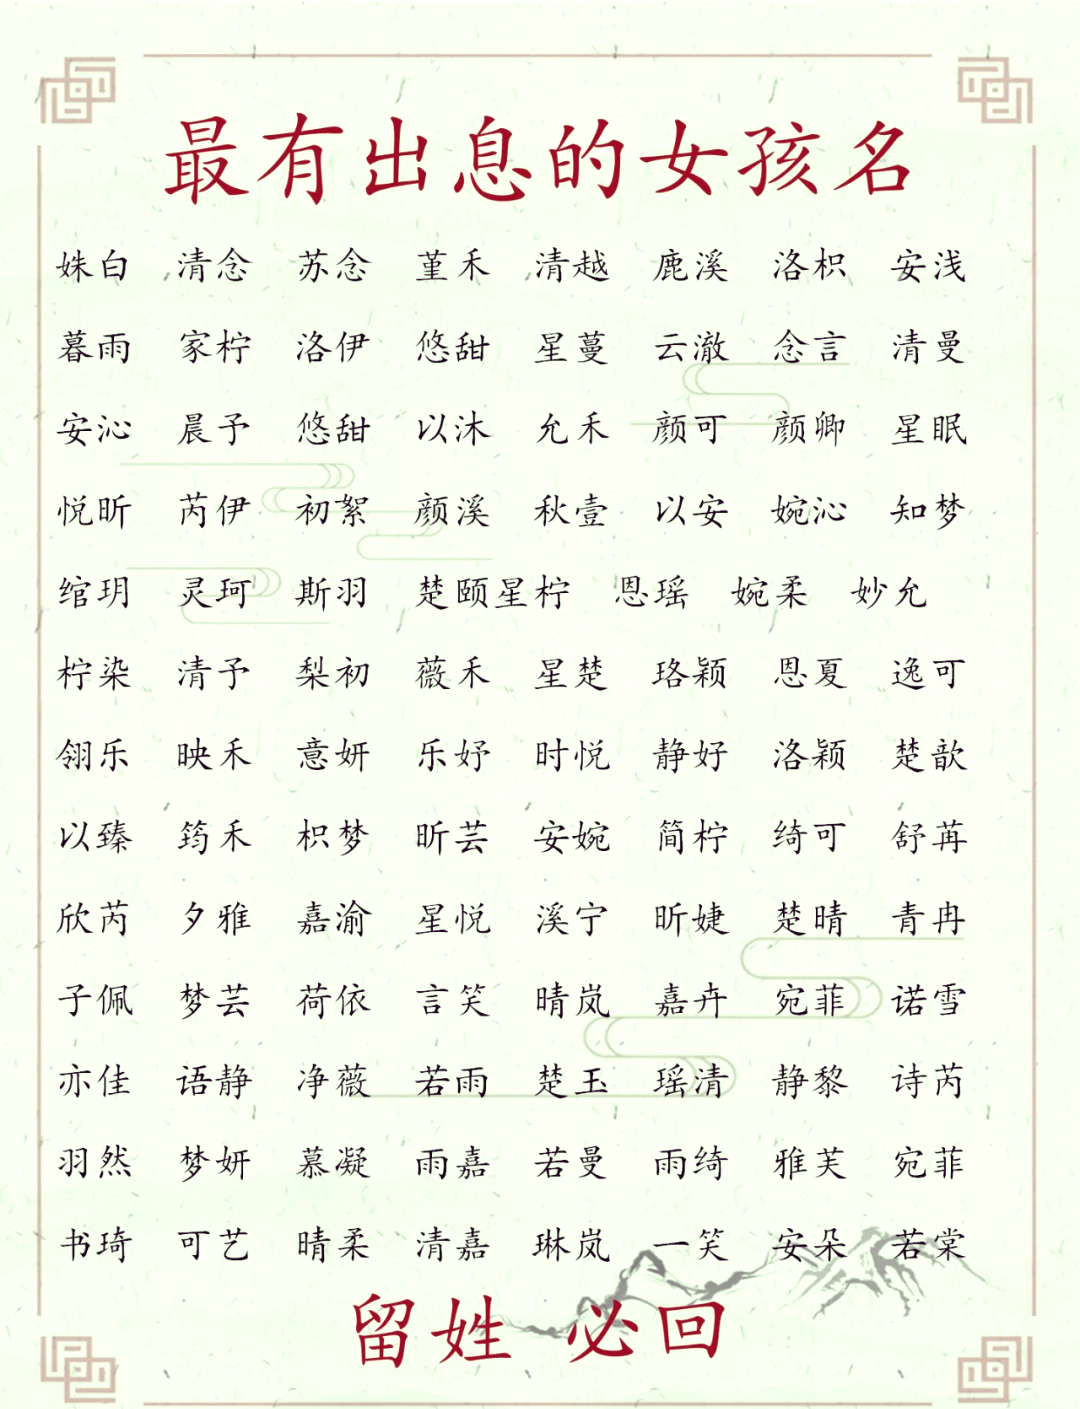 最有出息的女孩名
姝白 清念 苏念 堇禾 清越 鹿溪 洛枳 安浅
暮雨 家柠 洛伊 悠甜 星蔓 云澈 念言 清曼
安沁 晨予 悠甜 以沐 允禾 颜可 颜卿 星眠
悦昕 芮伊 初絮 颜溪 秋壹 以安 婉沁 知梦
绾玥 灵珂 斯羽 楚颐星柠 恩瑶 婉柔 妙允
柠染 清予 梨初 薇禾 星楚 珞颖 恩夏 逸可
翎乐 映禾 意妍 乐妤 时悦 静好 洛颖 楚歆
以臻 筠禾 枳梦 昕芸 安婉 简柠 绮可 舒苒
欣芮 夕雅 嘉渝 星悦 溪宁 昕婕 楚晴 青冉
子佩 梦芸 荷依 言笑 晴岚 嘉卉 宛菲 诺雪
亦佳 语静 净薇 若雨 楚玉 瑶清 静黎 诗芮
羽然 梦妍 慕凝 雨嘉 若曼 雨绮 雅芙 宛菲
书琦 可艺 晴柔 清嘉 琳岚 一笑 安朵 若棠
留姓 必回